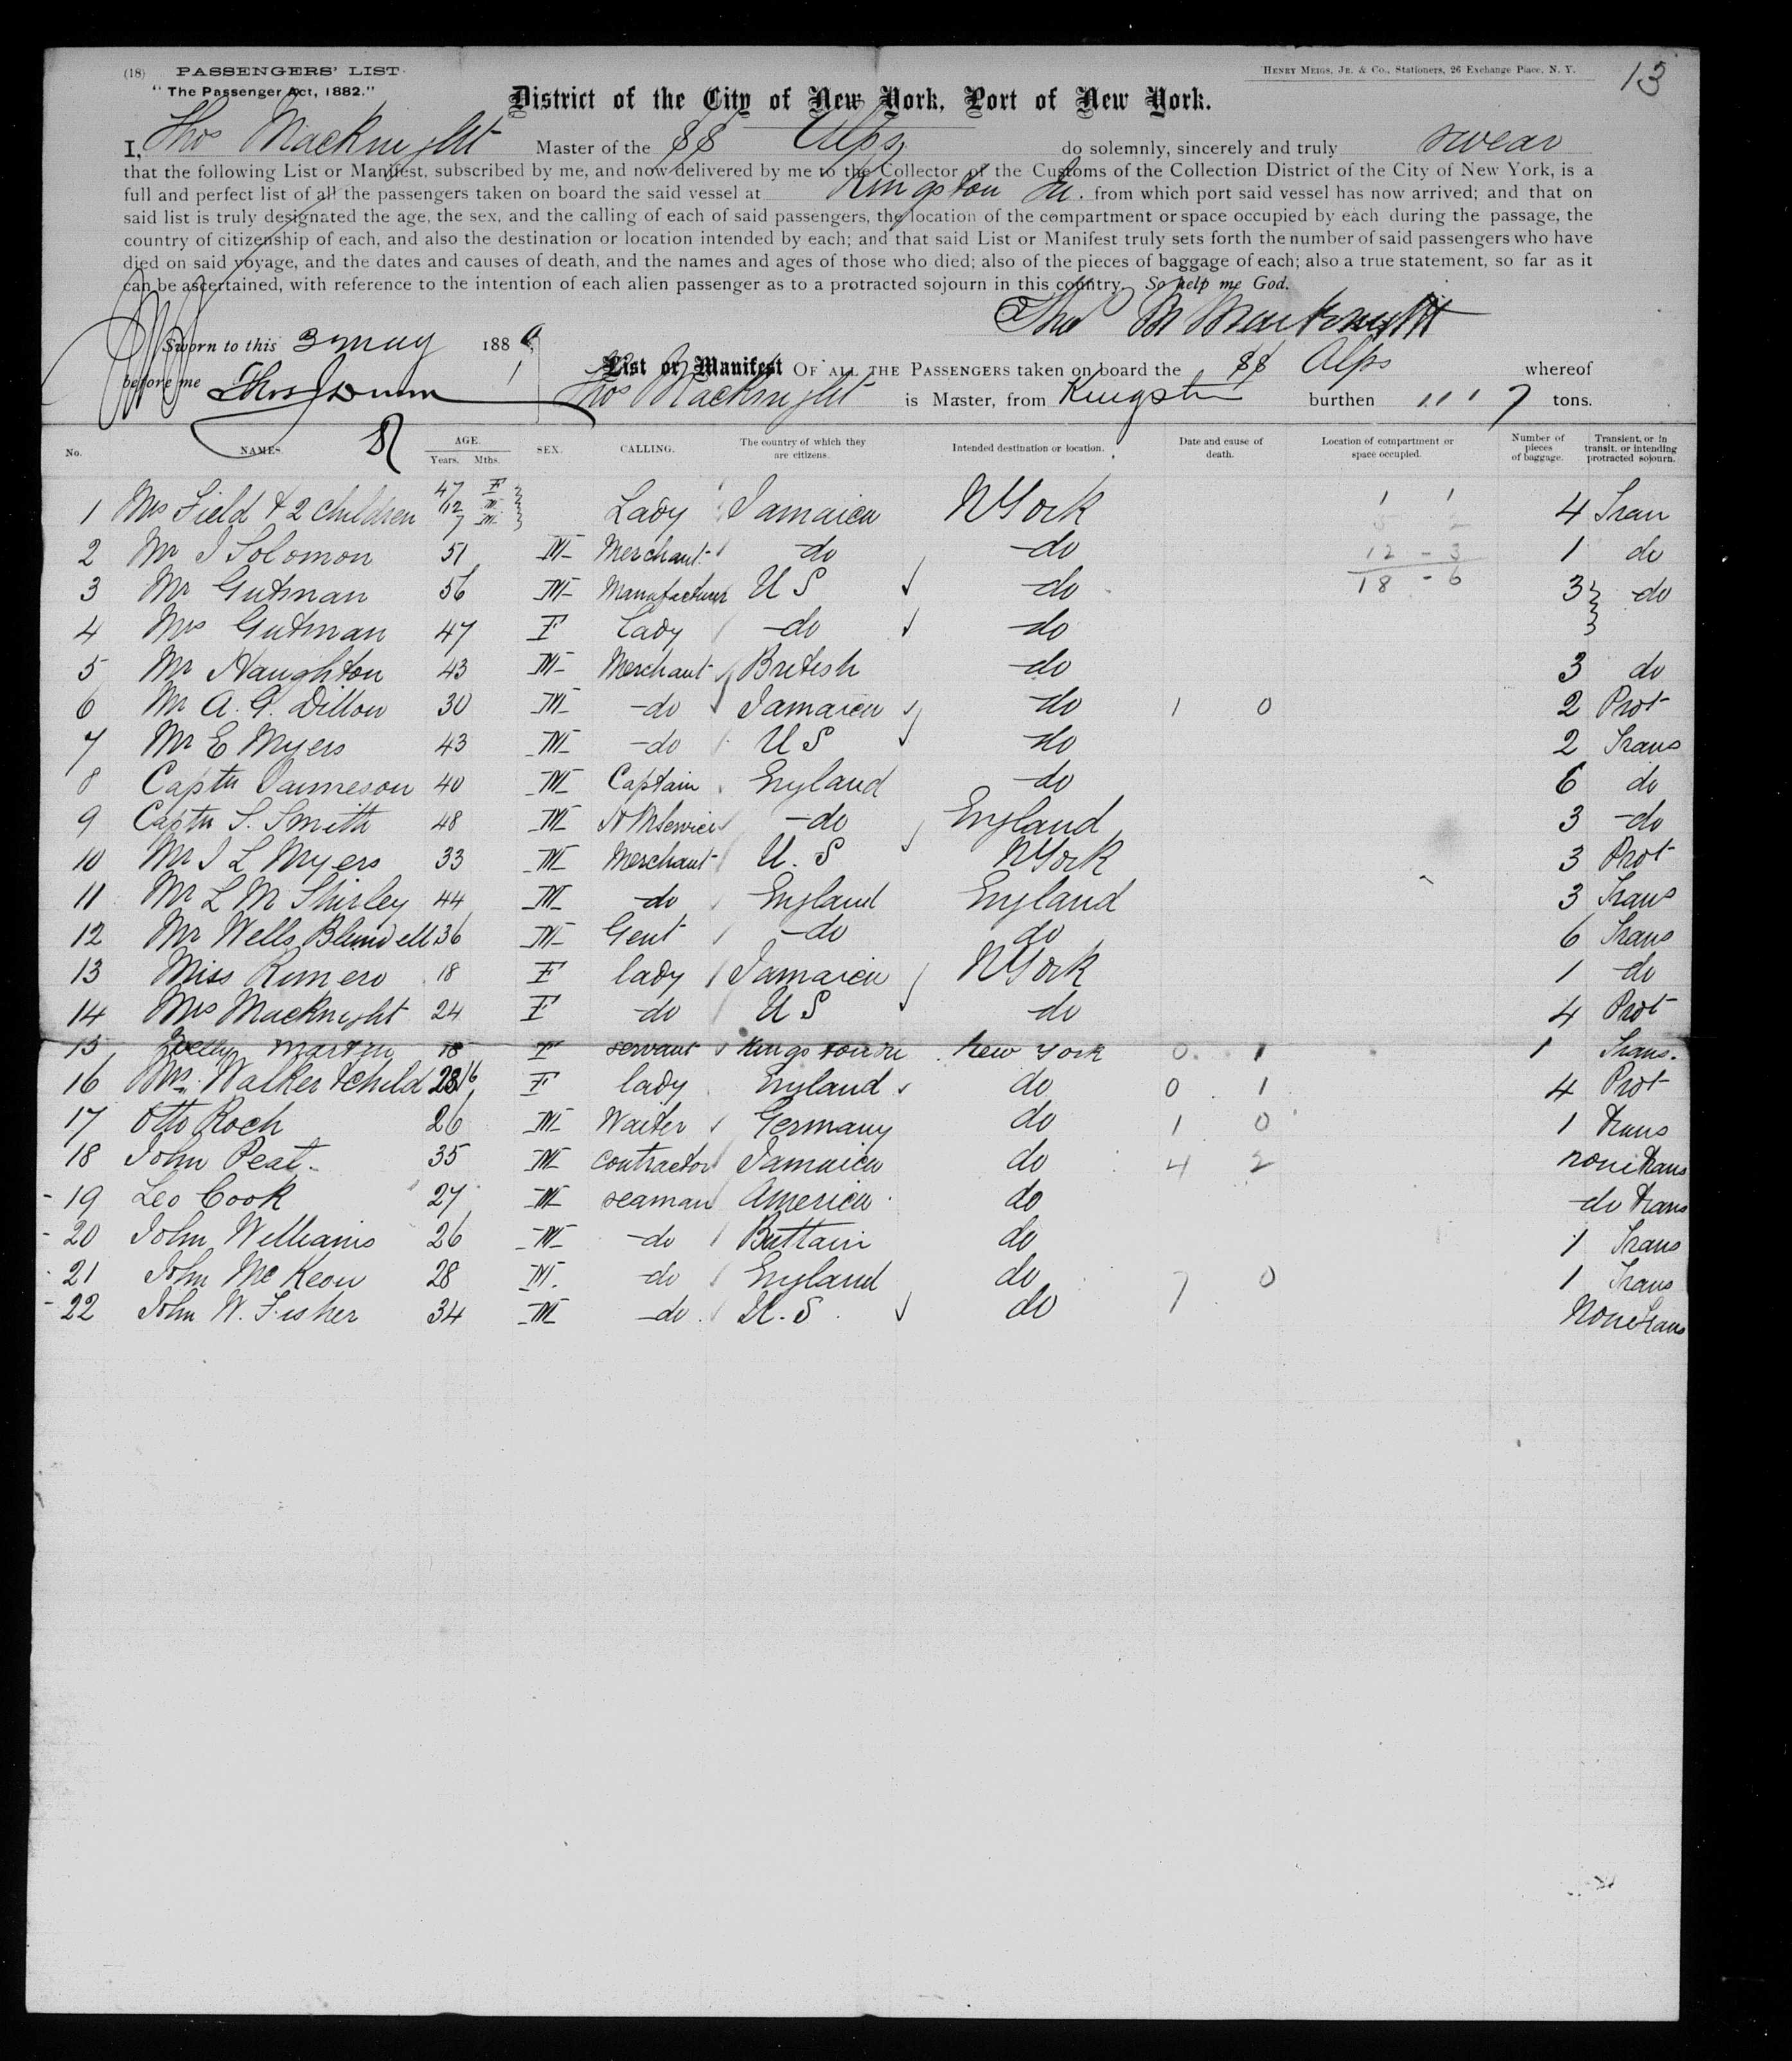 (18) PASSENGERS' LIST. HENRY MEIGS, JR. & CO., Stationers, 26 Exchange Place, N. Y. 13
"The Passenger Act, 1882."
District of the City of New York, Port of New York.
I, Thos Macknight Master of the SS Alps do solemnly, sincerely and truly swear
that the following List or Manifest, subscribed by me, and now delivered by me to the Collector of the Customs of the Collection District of the City of New York, is a
full and perfect list of all the passengers taken on board the said vessel at Kingston Ja. from which port said vessel has now arrived; and that on
said list is truly designated the age, the sex, and the calling of each of said passengers, the location of the compartment or space occupied by each during the passage, the
country of citizenship of each, and also the destination or location intended by each; and that said List or Manifest truly sets forth the number of said passengers who have
died on said voyage, and the dates and causes of death, and the names and ages of those who died; also of the pieces of baggage of each; also a true statement, so far as it
can be ascertained, with reference to the intention of each alien passenger as to a protracted sojourn in this country. So help me God.
Thos M Macknight
Sworn to this 3 may 1889
before me
List or Manifest OF ALL THE PASSENGERS taken on board the SS Alps whereof
Thos Macknight is Master, from Kingston burthen tons.
No. NAMES. AGE. Years. Mths. SEX. CALLING. The country of which they are citizens. Intended destination or location. Date and cause of death. Location of compartment or space occupied. Number of pieces of baggage. Transient, or in transit, or intending protracted sojourn.
1 Mrs Field & 2 children 47 F Lady Jamaica N York 1 1 4 Tran
2 Mr J Solomon 51 M Merchant do do 12 - 3 1 do
3 Mr Gutman 56 M Manufacturer U S do 18 - 6 3 do
4 Mrs Gutman 47 F Lady do do
5 Mr Haughton 43 M Merchant British do 3 do
6 Mr A. G. Dillon 30 M do Jamaica do 1 0 2 Prot
7 Mr E Myers 43 M do U S do 2 Trans
8 Captn Jameson 40 M Captain England do 6 do
9 Captn S. Smith 48 M do England 3 do
10 Mr J L Myers 33 M Merchant U. S N York 3 Prot
11 Mr L M Shirley 44 M do England England 3 Trans
12 Mr Wells Blundell 36 M Gent do do 6 Trans
13 Miss Romero 18 F lady Jamaica N York 1 do
14 Mrs Macknight 24 F do U S do 4 Prot
15 Martin 18 F servant Kingston New York 0 1 1 Trans.
16 Mrs Walker & child 28 F lady England do 0 1 4 Prot
17 Otto Koch 26 M Waiter Germany do 1 0 1 trans
18 John Peat 35 M contractor Jamaica do 4 2 none trans
19 Leo Cook 27 M seaman America do do trans
20 John Williams 26 M do Brittain do 1 Trans
21 John McKeon 28 M. do England do 7 0 1 Trans
22 John W. Fisher 34 M do U. S do None Trans